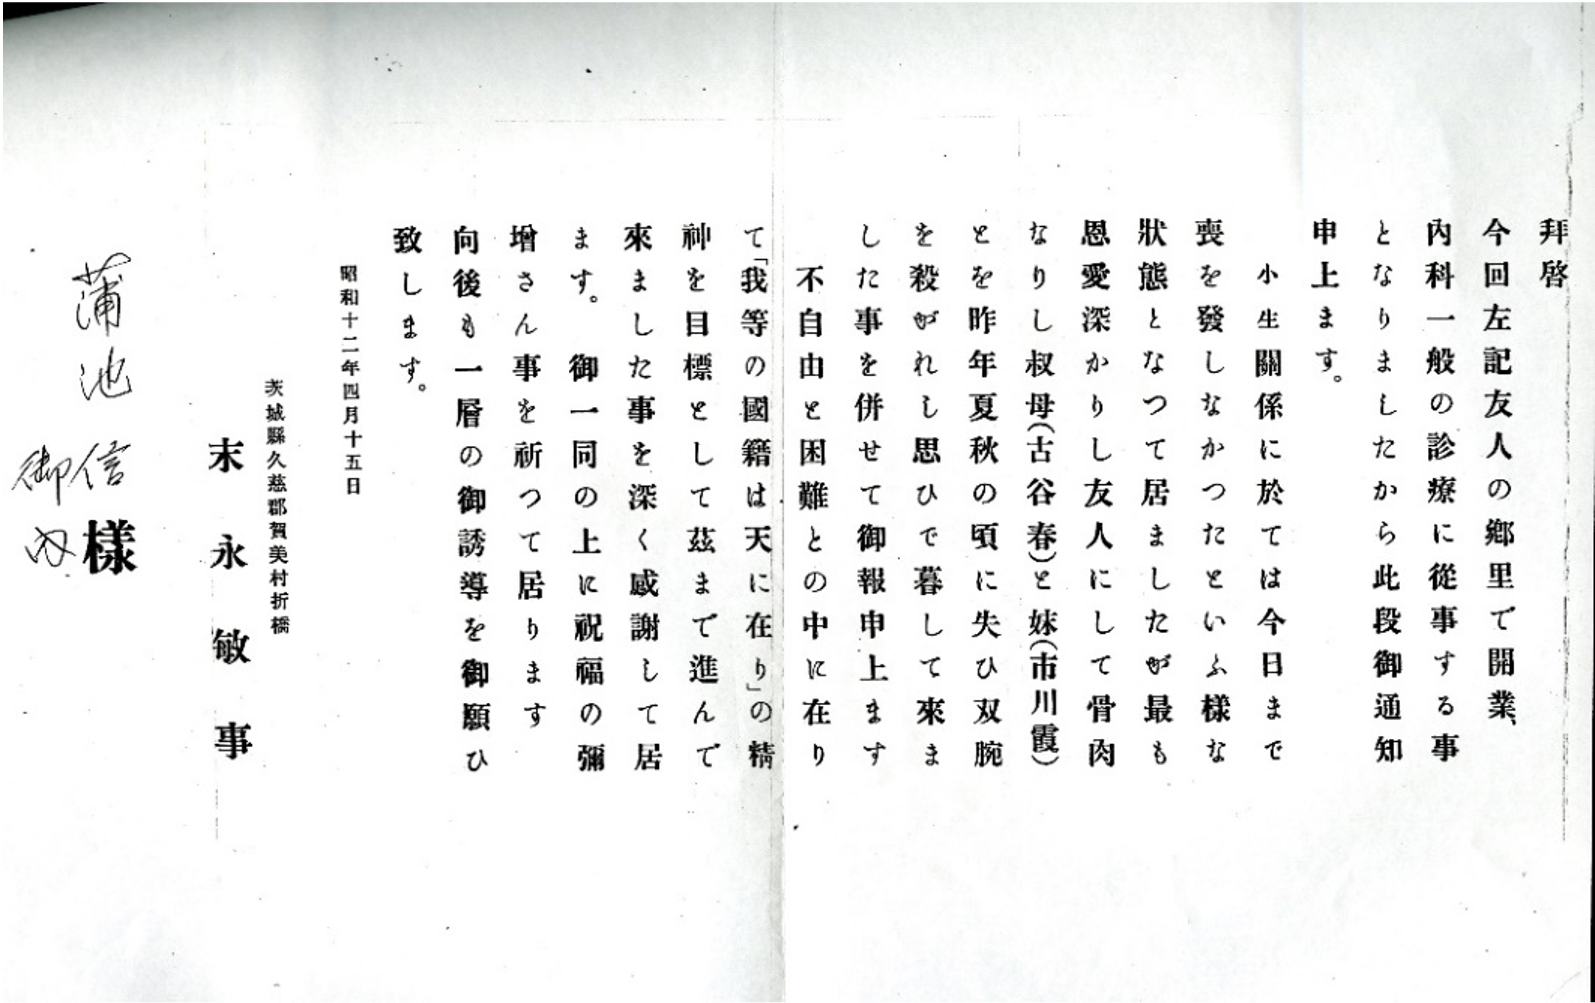 拜啓
今回左記友人の鄕里で開業、
內科一般の診療に從事する事
となりましたから此段御通知
申上ます。
小生關係に於ては今日まで
喪を發しなかつたといふ樣な
狀態となつて居ましたが最も
恩愛深かりし友人にして骨肉
なりし叔母(古谷春)と妹(市川霞)
とを昨年夏秋の頃に失ひ双腕
を殺がれし思ひで暮して來ま
した事を併せて御報申上ます
不自由と困難との中に在り
て「我等の國籍は天に在り」の精
神を目標として茲まで進んで
來ました事を深く感謝して居
ます。御一同の上に祝福の彌
增さん事を祈つて居ります
向後も一層の御誘導を御願ひ
致します。
昭和十二年四月十五日
茨城縣久慈郡賀美村折橋
末永敏事
蒲池信樣
御内